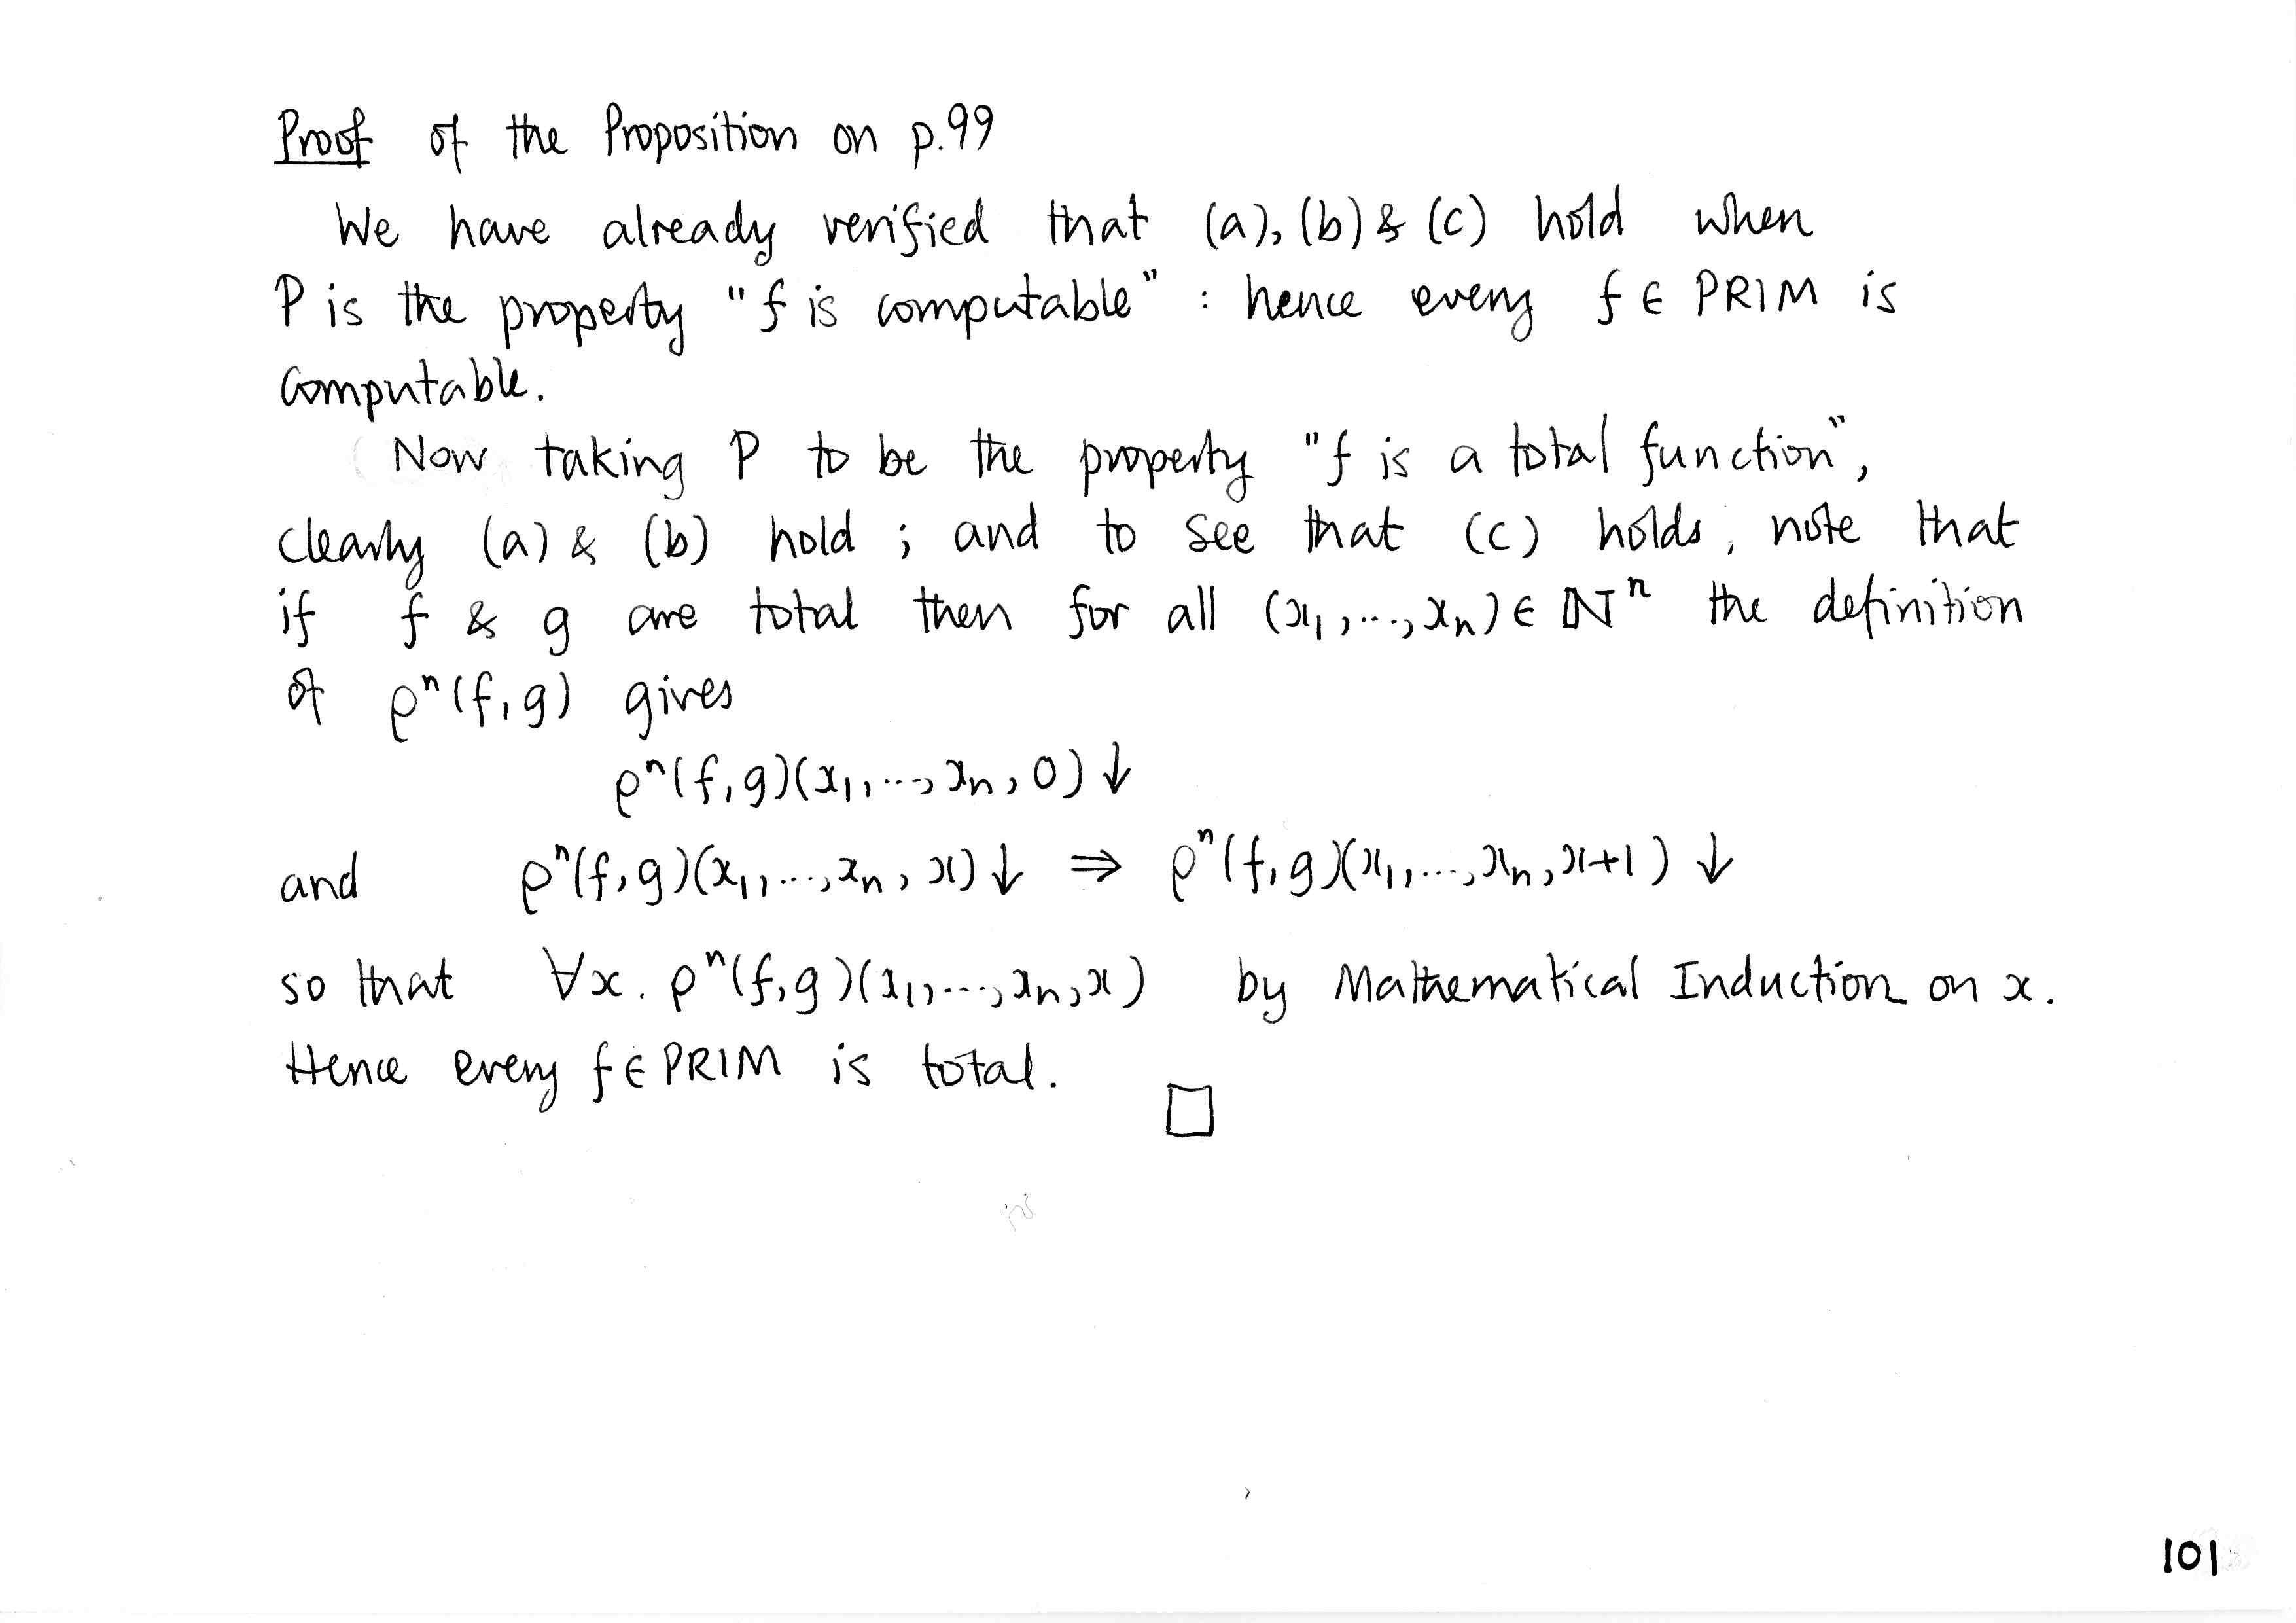 Proof of the Proposition on p.99
We have already verified that (a), (b) & (c) hold when
P is the property "f is computable" : hence every f ∈ PRIM is
computable.
Now taking P to be the property "f is a total function",
clearly (a) & (b) hold ; and to see that (c) holds, note that
if f & g are total then for all (x₁,...,xₙ) ∈ ℕⁿ the definition
of ρⁿ(f,g) gives
ρⁿ(f,g)(x₁,...,xₙ,0)↓
and ρⁿ(f,g)(x₁,...,xₙ,x)↓ ⇒ ρⁿ(f,g)(x₁,...,xₙ,x+1)↓
so that ∀x. ρⁿ(f,g)(x₁,...,xₙ,x) by Mathematical Induction on x.
Hence every f ∈ PRIM is total. □
101